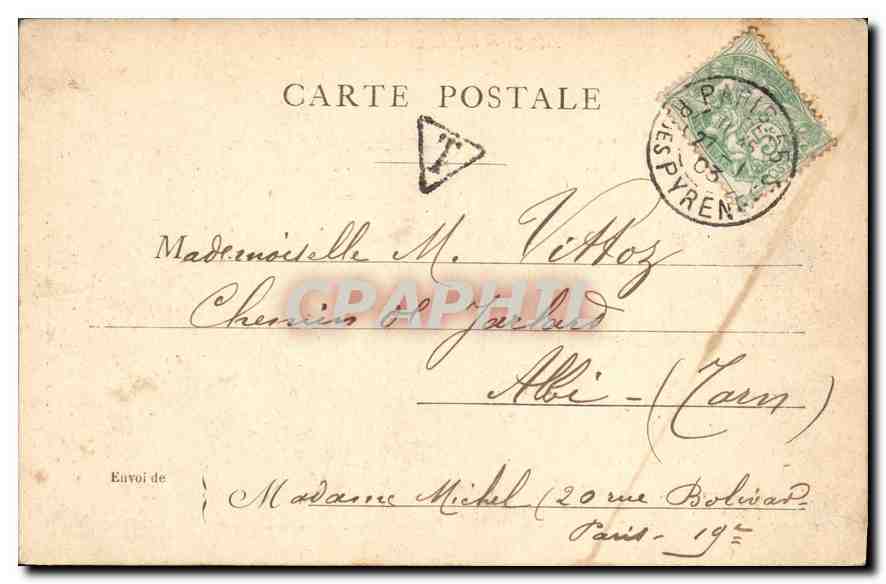 CARTE POSTALE
T
PARIS
R. DES PYRENEES
03
Mademoiselle M. Vittoz
CPAPHIL
Chemin de Jarlard
Albi - (Tarn)
Envoi de
Madame Michel (20 rue Bolivar
Paris - 19e